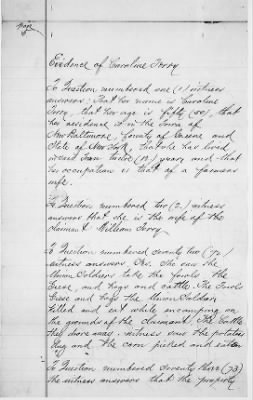 page
Evidence of Caroline Terry
To Question numbered one (1) witness
answers: That her name is Caroline
Terry, that her age is fifty (50), that
her residence is in the Town of
New Baltimore, County of Greene and
State of New York, that she has lived
twelve (12) years and that
her occupation is that of a farmers
wife.
To Question numbered two (2.) witness
answers that she is the wife of the
claimant William Terry.
To Question numbered seventy two (72)
witness answers Yes. She saw the
Union Soldiers take the fowls the
Geese, and hogs and cattle. The fowls
Geese and hogs the Union Soldiers
killed and eat while encamping on
the grounds of the claimant. The Cattle
they drove away. Witness saw the potatoes
dug and the corn picked and eaten
To Question numbered seventy three (73)
the witness answers that the property